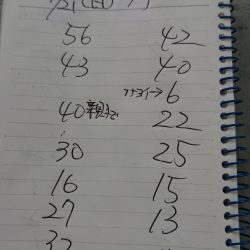 7/21(日)
56 42
43 40
→6
40 親まで 22
30 25
16 15
27 13
32